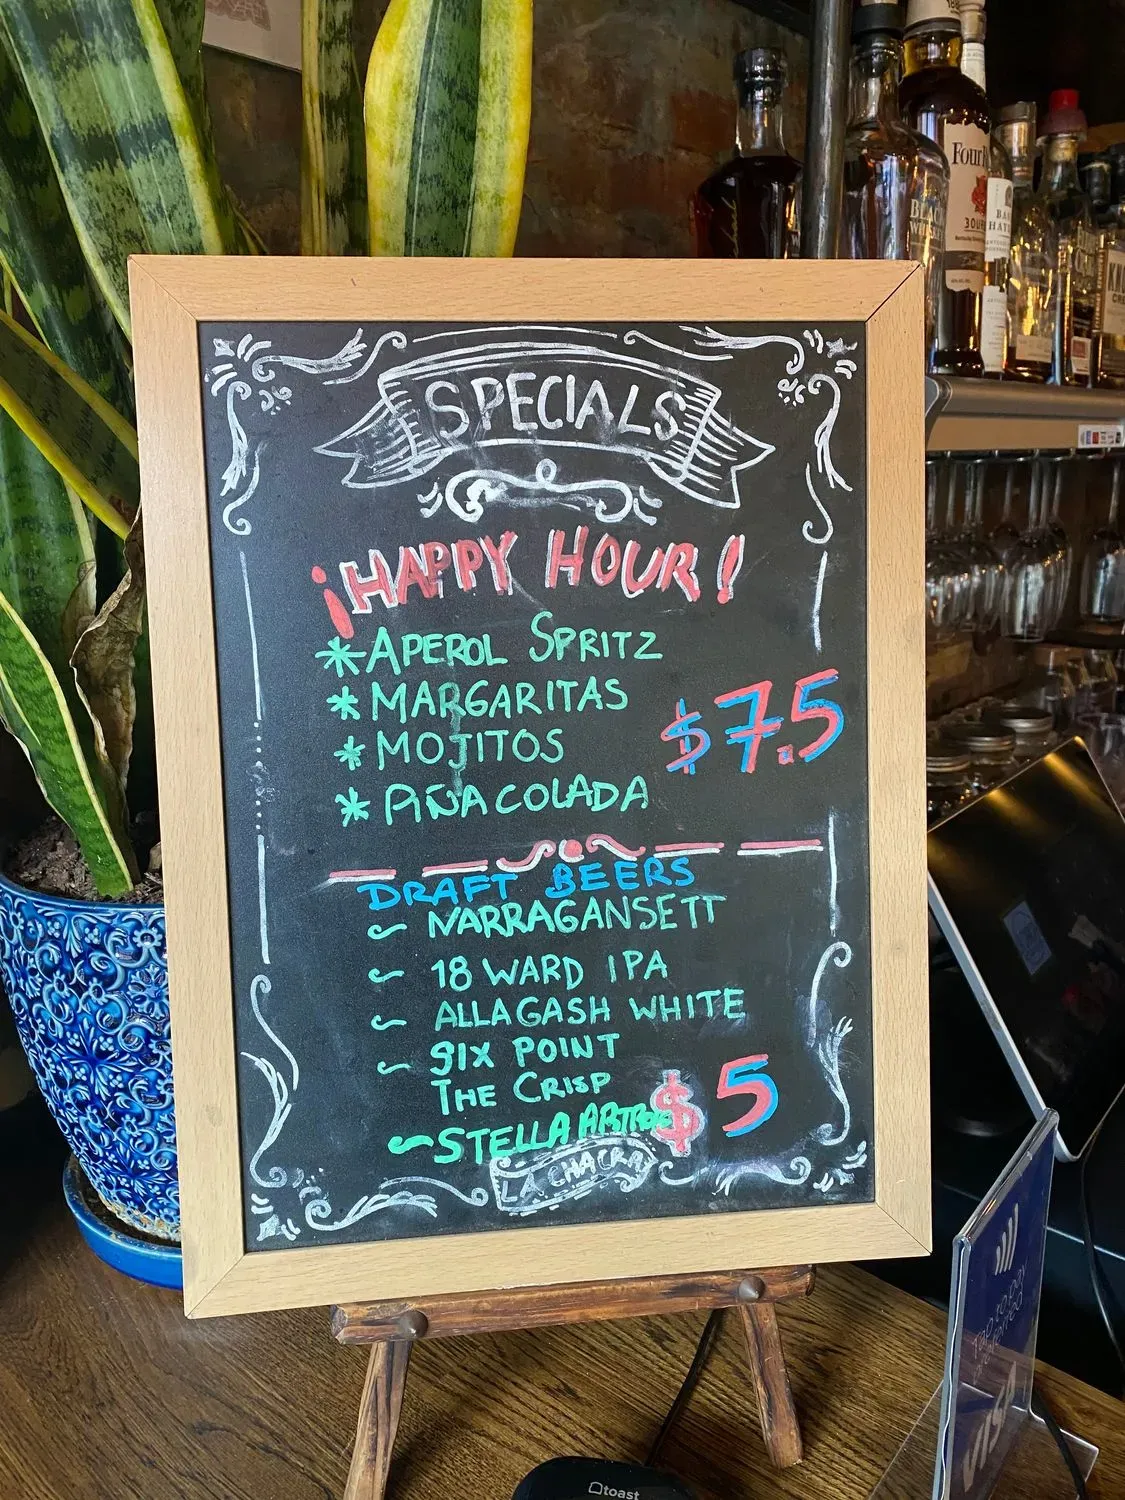 SPECIALS
¡HAPPY HOUR!
* APEROL SPRITZ
* MARGARITAS
* MOJITOS
* PIÑA COLADA
$7.5
DRAFT BEERS
~ NARRAGANSETT
~ 18 WARD IPA
~ ALLAGASH WHITE
~ SIX POINT
THE CRISP
~ STELLA ARTROIS
$5
LA CHACRA
Four
BLACK
toast
VISA